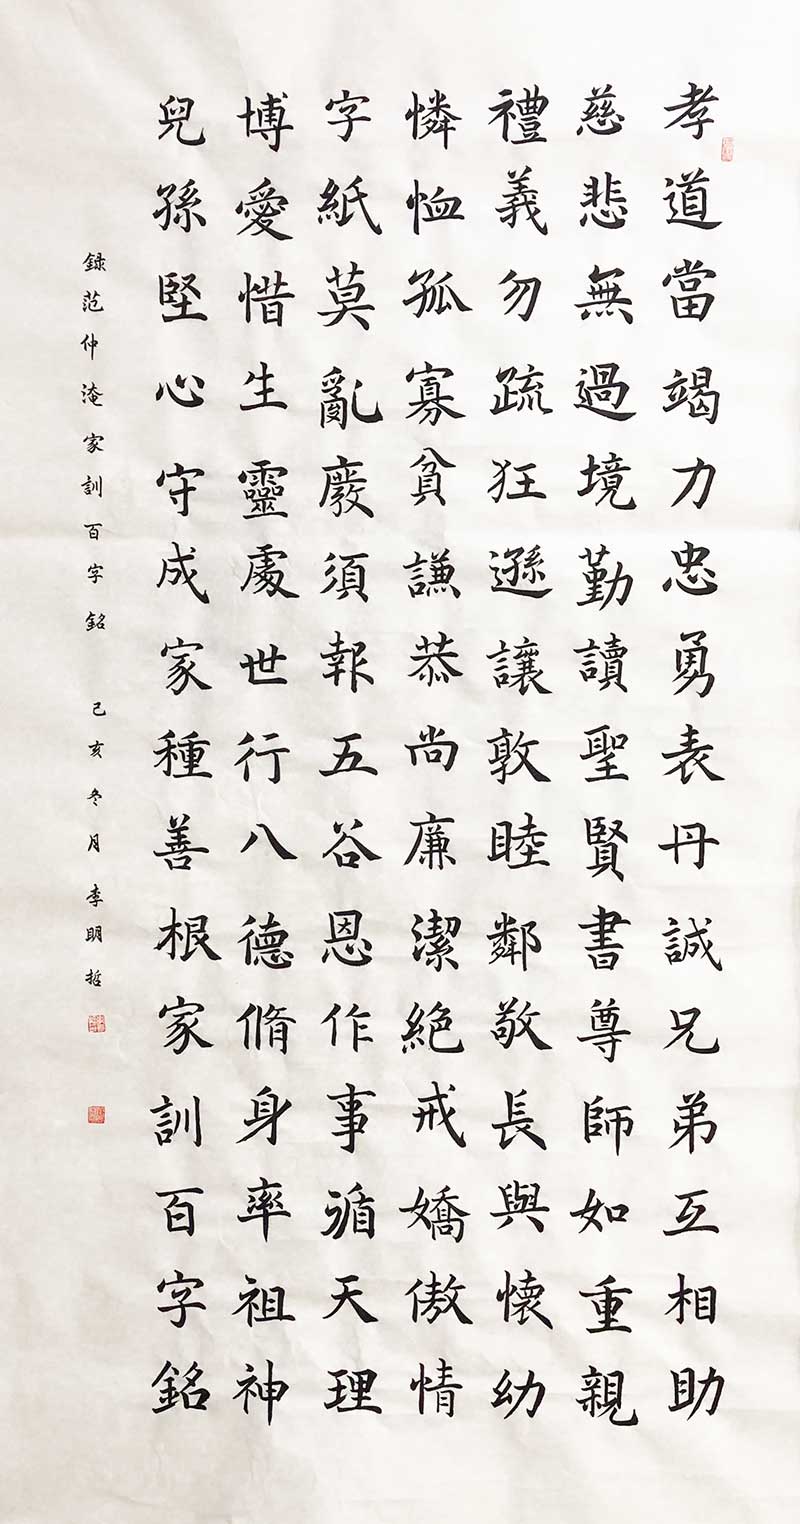 孝道當竭力忠勇表丹誠兄弟互相助
慈悲無過境勤讀聖賢書尊師如重親
禮義勿疏狂遜讓敦睦鄰敬長與懷幼
憐恤孤寡貧謙恭尚廉潔絕戒嬌傲情
字紙莫亂廢須報五谷恩作事循天理
博愛惜生靈處世行八德脩身率祖神
兒孫堅心守成家種善根家訓百字銘
録范仲淹家訓百字銘 己亥冬月李明哲